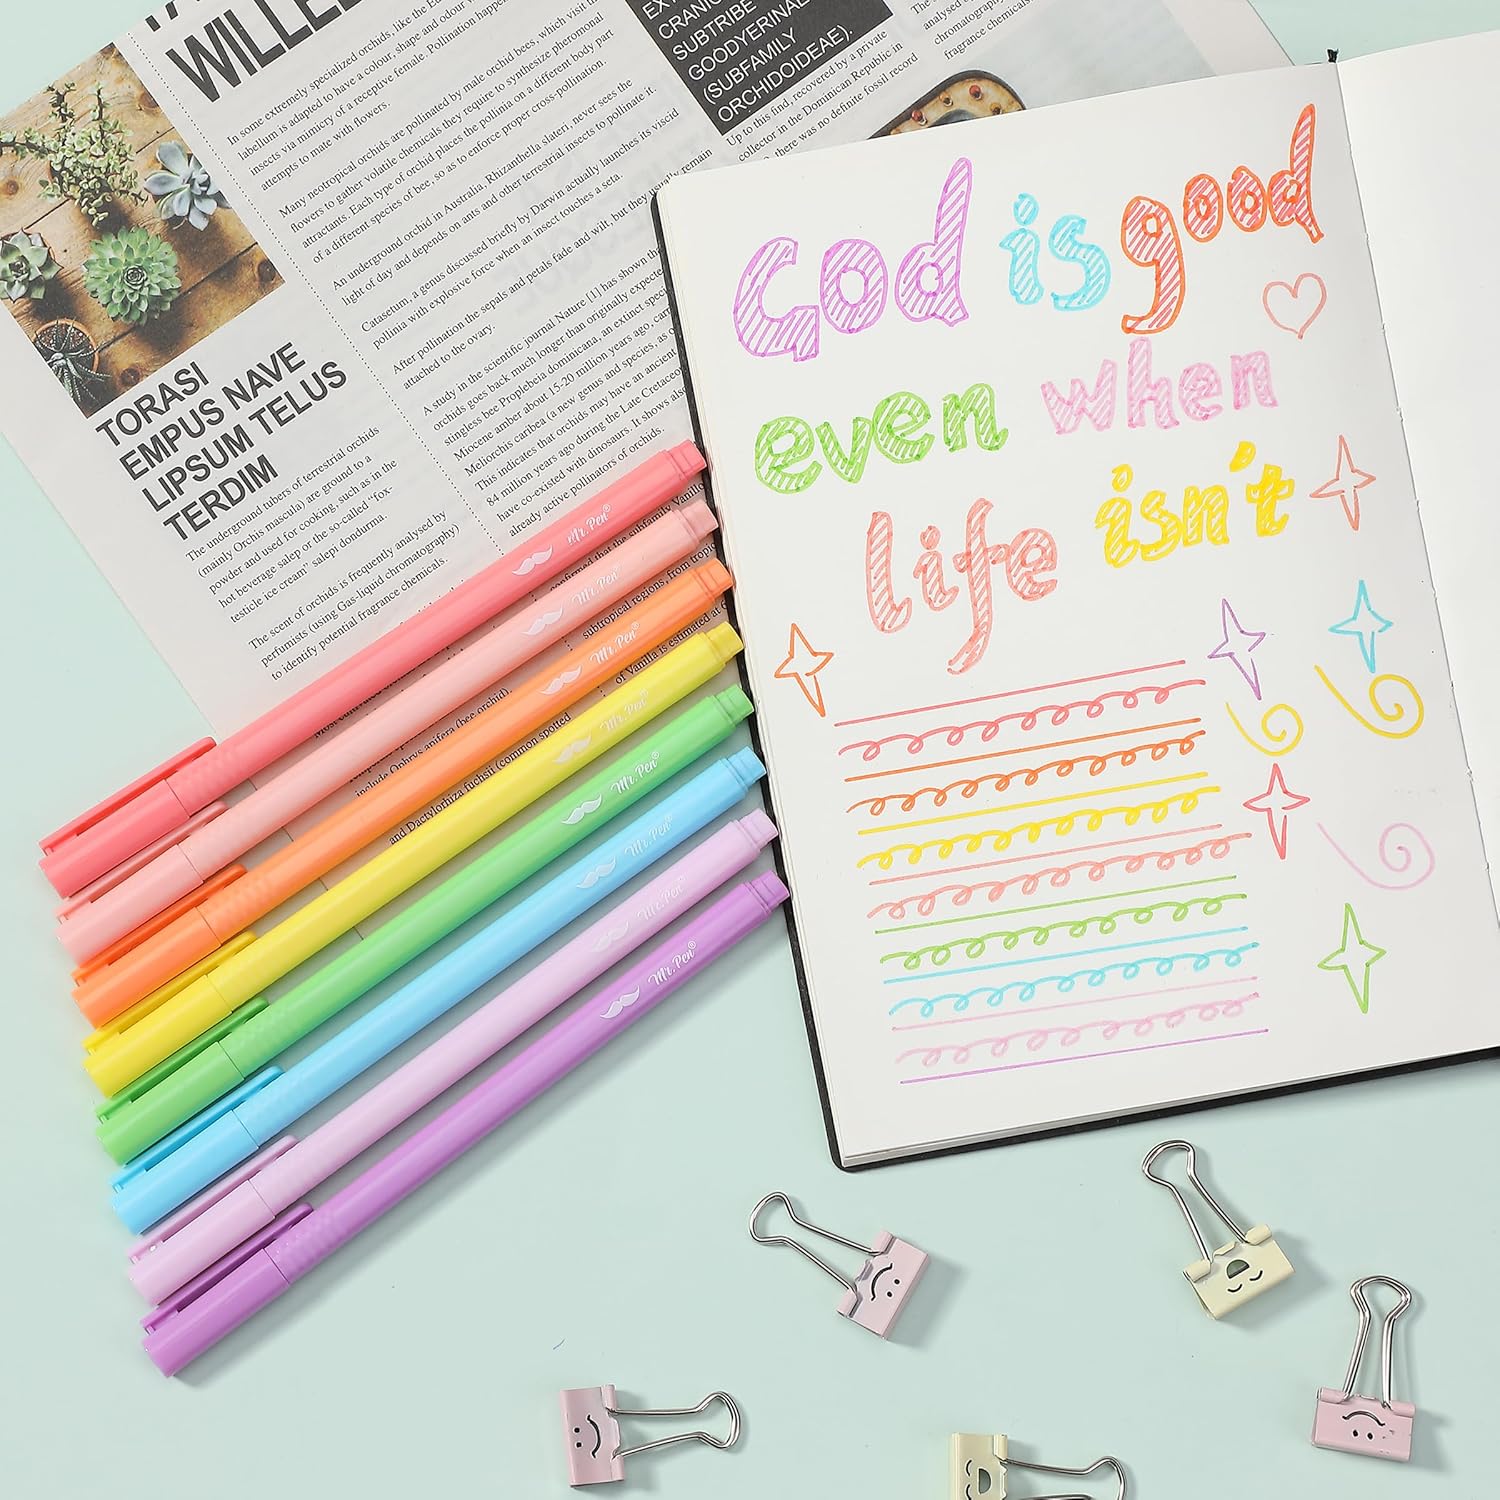 WILLE
In some extremely specialized orchids, like the Eu
labellum is adapted to have a colour, shape and odour w
insects via mimicry of a receptive female. Pollination happen
attempts to mate with flowers.
Many neotropical orchids are pollinated by male orchid bees, which visit the
flowers to gather volatile chemicals they require to synthesize pheromonal
attractants. Each type of orchid places the pollinia on a different body part
of a different species of bee, so as to enforce proper cross-pollination.
An underground orchid in Australia, Rhizanthella slateri, never sees the
light of day and depends on ants and other terrestrial insects to pollinate it.
Catasetum, a genus discussed briefly by Darwin actually launches its viscid
pollinia with explosive force when an insect touches a seta.
After pollination the sepals and petals fade and wilt, but they usually remain
attached to the ovary.
A study in the scientific journal Nature [1] has shown tha
orchids goes back much longer than originally expecte
stingless bee Proplebeia dominicana, an extinct speci
Miocene amber about 15-20 million years ago, carr
Meliorchis caribea (a new genus and species, as o
This indicates that orchids may have an ancient
84 million years ago during the Late Cretaceo
have co-existed with dinosaurs. It shows also
already active pollinators of orchids.
EXT
CRANIC
SUBTRIBE
GOODYERINAE
(SUBFAMILY
ORCHIDOIDEAE).
Up to this find, recovered by a private
collector in the Dominican Republic in
there was no definite fossil record
The s
analysed b
chromatography
fragrance chemicals.
TORASI
EMPUS NAVE
LIPSUM TELUS
TERDIM
The underground tubers of terrestrial orchids
(mainly Orchis mascula) are ground to a
powder and used for cooking, such as in the
hot beverage salep or the so-called "fox-
testicle ice cream" salepi dondurma.
The scent of orchids is frequently analysed by
perfumists (using Gas-liquid chromatography)
to identify potential fragrance chemicals.
confirmed that the subfamily Vanillo
subtropical regions, from tropic
of Vanilla is estimated at
include Ophrys apifera (bee orchid),
and Dactylorhiza fuchsii (common spotted
Mr. Pen®
Mr. Pen®
Mr. Pen®
Mr. Pen®
Mr. Pen®
Mr. Pen®
Mr. Pen®
Mr. Pen®
God is good
even when
life isn't